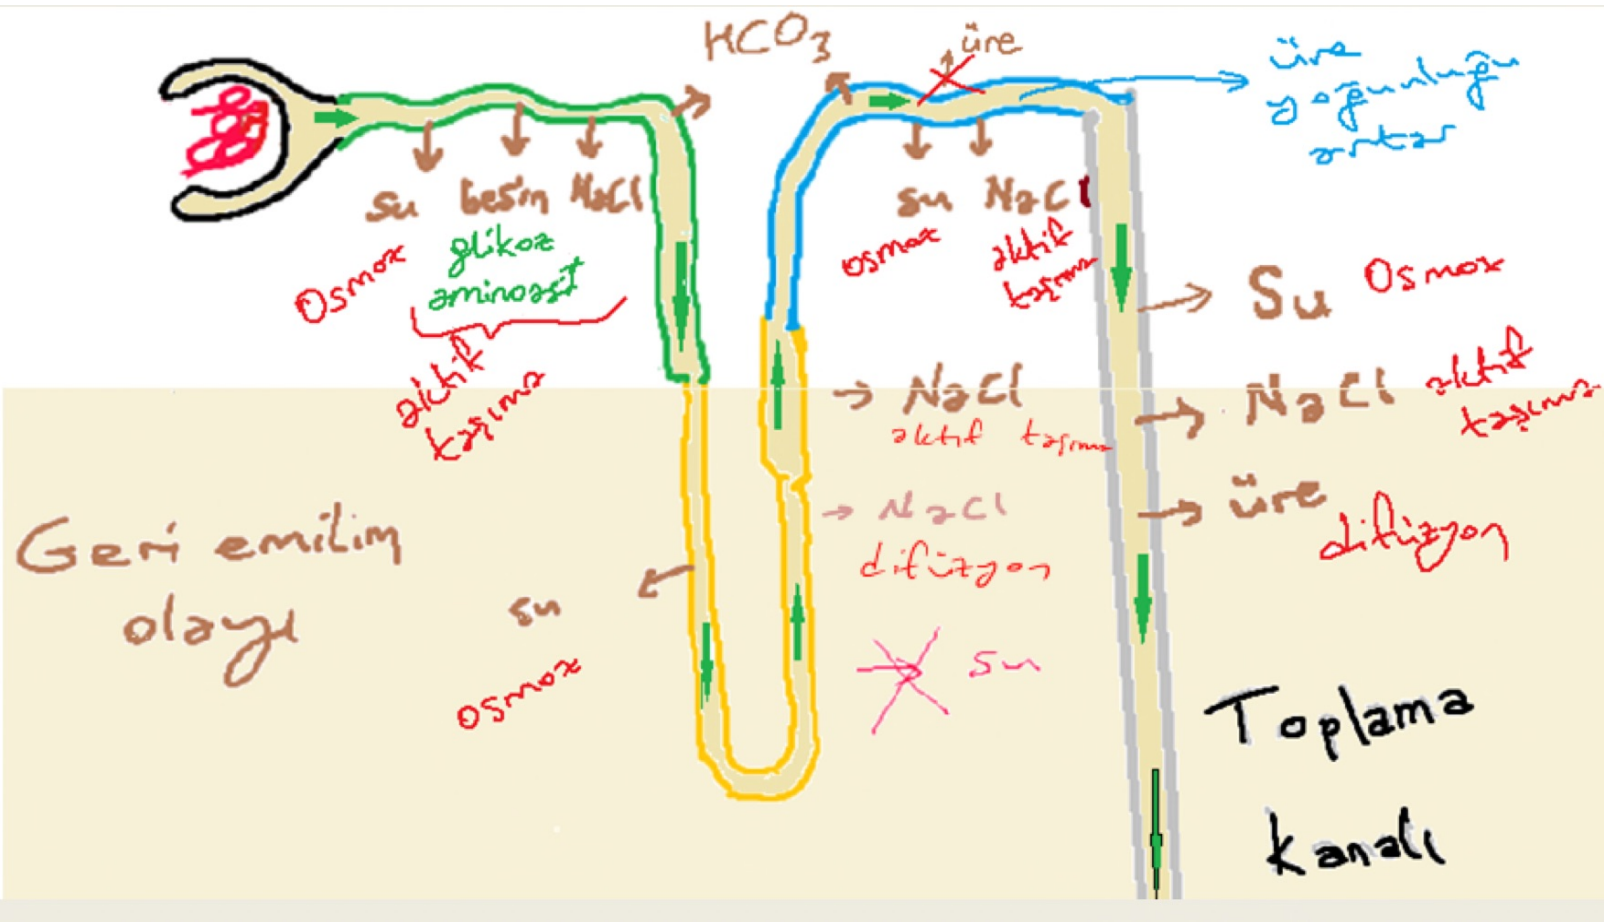 HCO3
üre
üre
yoğunluğu
artar
su besin NaCl
glikoz
aminoasit
Osmoz
aktif
taşıma
su NaCl
osmoz
aktif
taşıma
Su Osmoz
NaCl aktif
taşıma
üre difüzyon
NaCl
aktif taşıma
NaCl
difüzyon
su
Geri emilim
olayı
su
osmoz
Toplama
kanalı